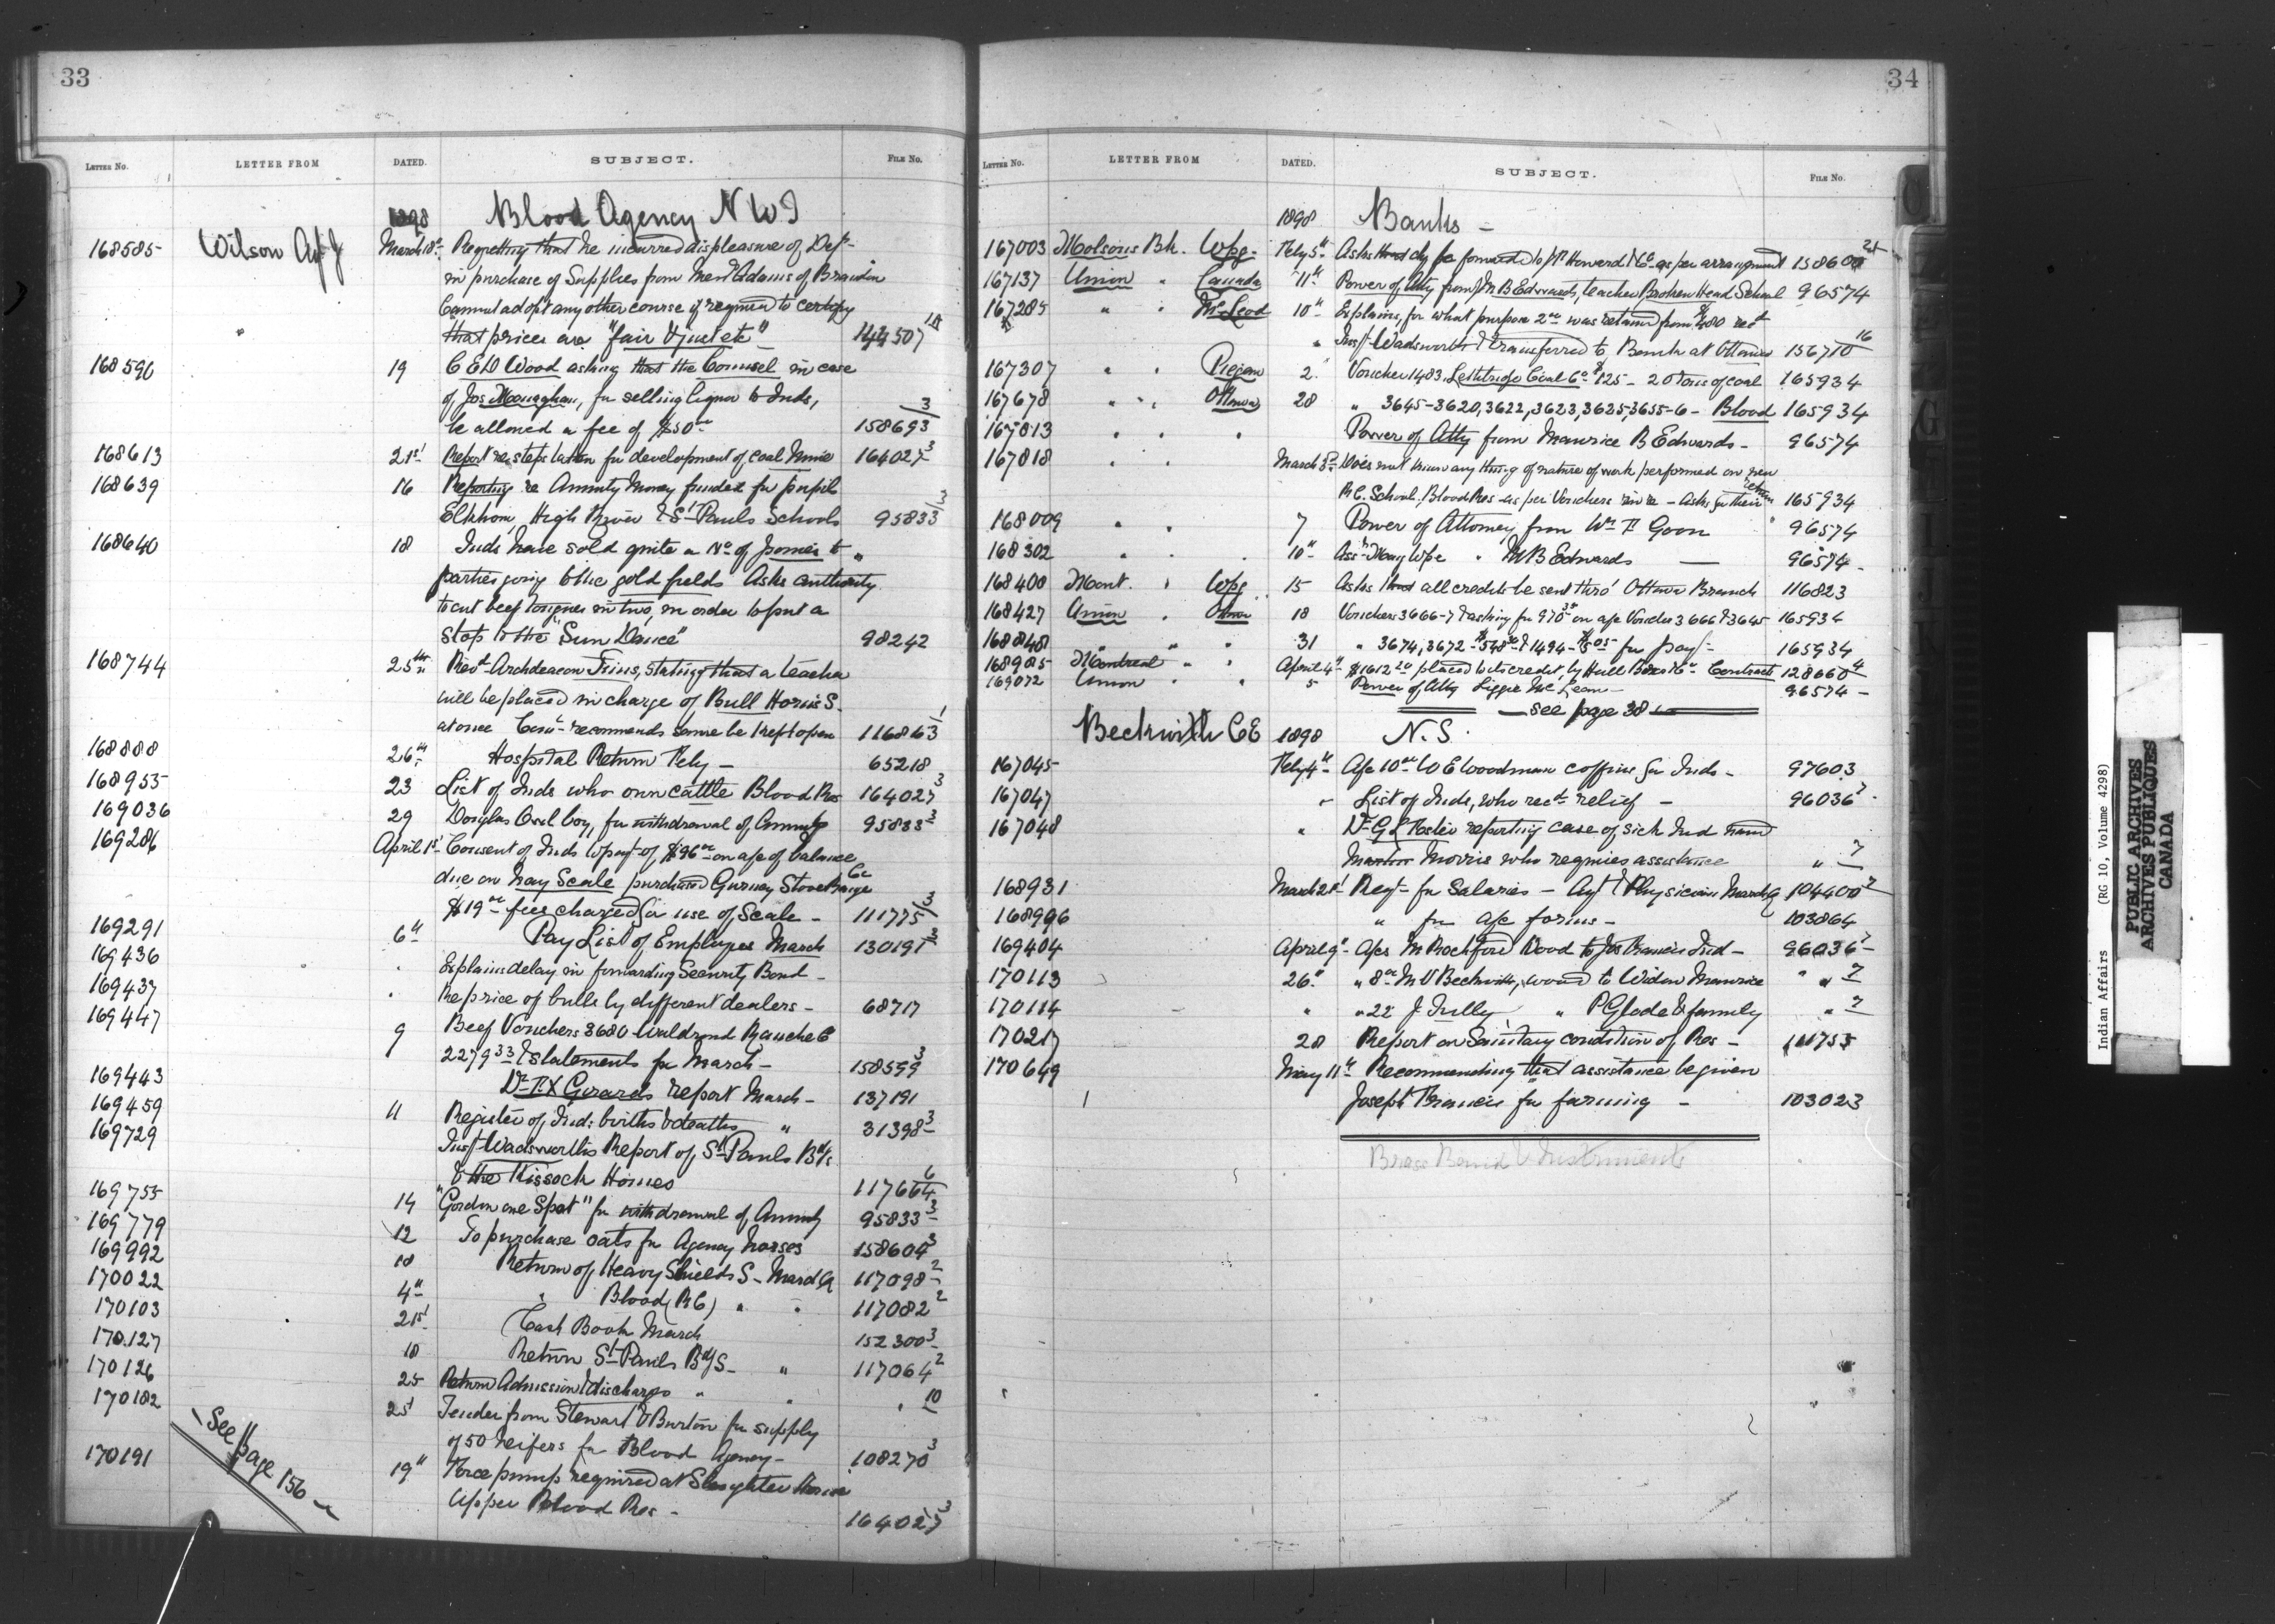 33
LETTER NO. LETTER FROM DATED. SUBJECT. FILE NO.
1898 Blood Agency N W T
168585 Wilson Agt J March 18th Regretting that he incurred displeasure of Dept
in purchase of Supplies from Adams of Brandon
Cannot adopt any other course if required to certify
that prices are "fair & just etc" 144507
168590 19 C E D Wood asking that the Counsel in case
of Jos Monaghan, for selling liquor to Inds,
be allowed a fee of $50 00 158693/3
168613 21st Report re steps taken for development of coal Mine 164027 3
168639 16 Reporting re Annuity Money funded for pupils
Elkhorn, High River & St Pauls Schools 95833/3
168640 18 Inds have sold quite a No of ponies to
parties going to the gold fields Asks authority
to cut beef tongues in two, in order to put a
stop to the "Sun Dance" 98242
168744 25th Revd Archdeacon Tims, stating that a teacher
will be placed in charge of Bull Horns S.
at once Comr recommends same be kept open 116863/1
168888 26th Hospital Return Feby - 65218
168955 23 List of Inds who own cattle Blood Res 164027 3
169036 29 Douglas Owl boy, for withdrawal of Annuity 95833 3
169286 April 1st Consent of Inds to payt of $96 00 on a/c of balance
due on hay Scale purchased Gurney Stove Range Co
$19 00 fees charged for use of Scale - 111775/3
169291 6th Pay List of Employees March 130191
169436 " Explains delay in forwarding Security Bond -
169437 " Re price of bulls by different dealers - 68717
169447 9 Beef Vouchers 3680 Waldrond Ranche Co
2279 33 & statements for March - 158599 3
169443 Dr F X Girards report March - 137191
169459 11 Register of Ind: births & deaths " 31398 3
169729 Inst Wadsworths Report of St Pauls Bdg
& the Kissock Homes 117664 6
169755 14 "Gordon one Spot" for withdrawal of Annuity 95833 3
169779 12 To purchase oats for Agency horses 158604 3
169992 18 Return of Heavy Shields S - March Qr 117098 2
170022 4th " Blood (R C) " " 117082 2
170103 21st Cash Book March 152300 3
170127 18 Return St Pauls Bdg S - " 117064 2
170126 25 Return Admission & discharges " " 10
170182 25 Tender from Stewart & Burton for supply
of 50 heifers for Blood Agency - 108270 3
170191 19th Force pump required at Slaughter House
Upper Blood Res - 164027 3
See page 156
34
LETTER NO. LETTER FROM DATED. SUBJECT. FILE NO.
1898 Banks -
167003 Molsons Bk. Wpg - Feby 5th Asks that be forwarded to Howard & Co as per arrangement 158600 21
167137 Union " Canada 11th Power of Atty from M B Edwards, teacher Broken Head School 96574
167285 " " McLeod 10th Explains, for what purpose 2 00 was retained from $480 recd
" Inst Wadsworth & transferred to Bank at Ottawa 156710 16
167307 " " Piegan 2 Voucher 1483, Lethbridge Coal Co $125 - 20 Tons of coal 165934
167678 " " Ottawa 28 " 3645-3620, 3622, 3623, 3625-3655-6 - Blood 165934
167813 " " " Power of Atty from Maurice B Edwards - 96574
167818 " " March 3rd Does not know any thing of nature of work performed on new
R.C. School, Blood Res - as per Vouchers - Asks for their return 165934
168009 " " 7 Power of Attorney from Wm F Goon 96574
168302 " " " 10th " M B Edwards - 96574
168400 Mont. " Wpg 15 Asks that all credits be sent thro' Ottawa Branch 116823
168427 Union " Ottawa 18 Vouchers 3666-7 & asking for 970 on a/c Voucher 3666 & 3645 165934
168848 " " " 31 " 3674, 3672 - & 1494 - for payt - 165934
168985 Montreal " " April 4th $1612 20 placed to its credit, by Hull Bros & Co Contracts 128660 4
169072 Union " " 5 Power of Atty Lizzie McLean - 96574
see page 38
Beckwith C E 1898 N.S.
167045 Feby 4th A/c 10 00 W E Woodman coffins for Inds - 97603
167047 " List of Inds, who recd relief - 96036 7
167048 " Dr G L Foster reporting case of sick Ind named
Morris who requires assistance " 7
168931 March 21st Reqt for Salaries - Agt & Physician March Q 104400 2
168996 " for a/c forms - 103864
169404 April 9th A/cs M Rochford Wood to Jos Francis Ind - 96036 7
170113 26th " 8 00 M V Beckwith, wood to Widow Maurice " " 7
170114 " " 22 J Tully " P Glode & family " 7
170217 28 Report on Sanitary condition of Res - 111755
170649 May 11th Recommending that assistance be given
Joseph Francis for farming - 103023
Brass Band & Instruments
Indian Affairs (RG 10, Volume 4298)
PUBLIC ARCHIVES
ARCHIVES PUBLIQUES
CANADA